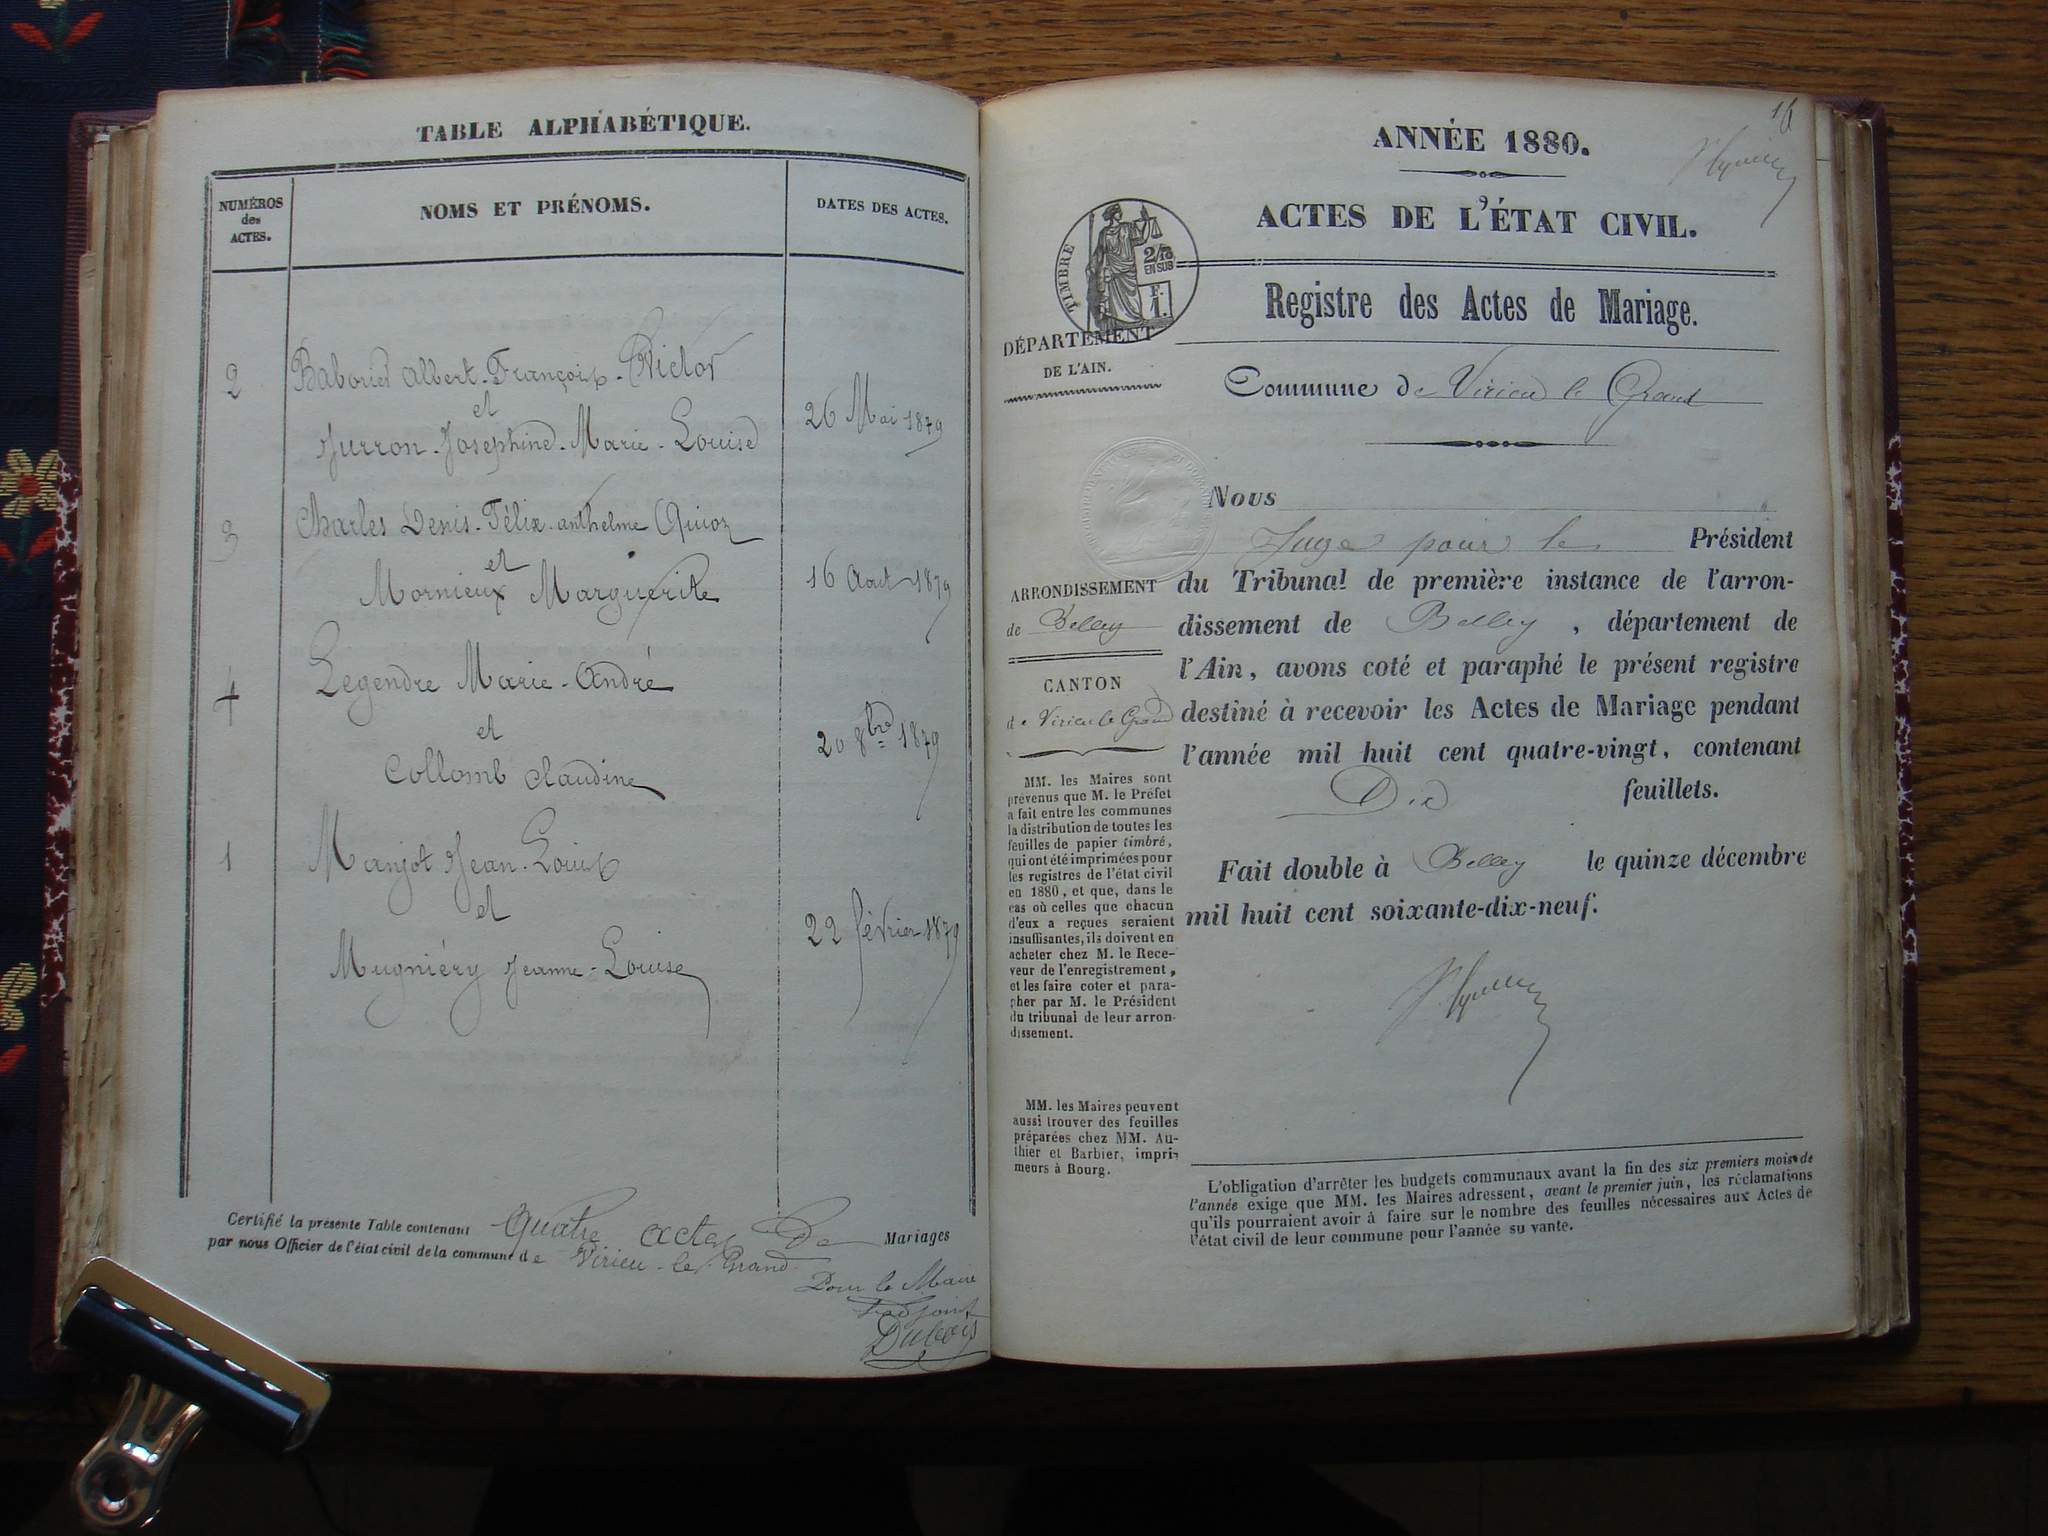 TABLE ALPHABÉTIQUE.
NUMÉROS
des
ACTES.
NOMS ET PRÉNOMS.
DATES DES ACTES.
2
Albert-François-Victor
et
Joséphine-Marie-Louise
26 Mai 1879
3
Charles Denis-Félix-anthelme
et
Mornieux Marguerite
16 Aout 1879
4
Legendre Marie-André
et
Collomb Claudine
20 8bre 1879
1
Manjot Jean-Louis
et
Mugniéry Jeanne-Louise
22 février 1879
Certifié la présente Table contenant Quatre actes De Mariages
par nous Officier de l'état civil de la commune de Virieu-le-Grand
Pour le Maire
l'adjoint
Dubois
16
ANNÉE 1880.
ACTES DE L'ÉTAT CIVIL.
TIMBRE
2/10
EN SUS
F.
1.
Registre des Actes de Mariage.
DÉPARTEMENT
DE L'AIN.
Commune de Virieu le Grand
Nous
Juge pour le Président
du Tribunal de première instance de l'arron-
dissement de Belley, département de
l'Ain, avons coté et paraphé le présent registre
destiné à recevoir les Actes de Mariage pendant
l'année mil huit cent quatre-vingt, contenant
Dix feuillets.
Fait double à Belley le quinze décembre
mil huit cent soixante-dix-neuf.
ARRONDISSEMENT
de Belley
CANTON
de Virieu le Grand
MM. les Maires sont
prévenus que M. le Préfet
a fait entre les communes
la distribution de toutes les
feuilles de papier timbré,
qui ont été imprimées pour
les registres de l'état civil
en 1880, et que, dans le
cas où celles que chacun
d'eux a reçues seraient
insuffisantes, ils doivent en
acheter chez M. le Rece-
veur de l'enregistrement,
et les faire coter et para-
pher par M. le Président
du tribunal de leur arron-
dissement.
MM. les Maires peuvent
aussi trouver des feuilles
préparées chez MM. Au-
thier et Barbier, impri-
meurs à Bourg.
L'obligation d'arrêter les budgets communaux avant la fin des six premiers mois de
l'année exige que MM. les Maires adressent, avant le premier juin, les réclamations
qu'ils pourraient avoir à faire sur le nombre des feuilles nécessaires aux Actes de
l'état civil de leur commune pour l'année su vante.